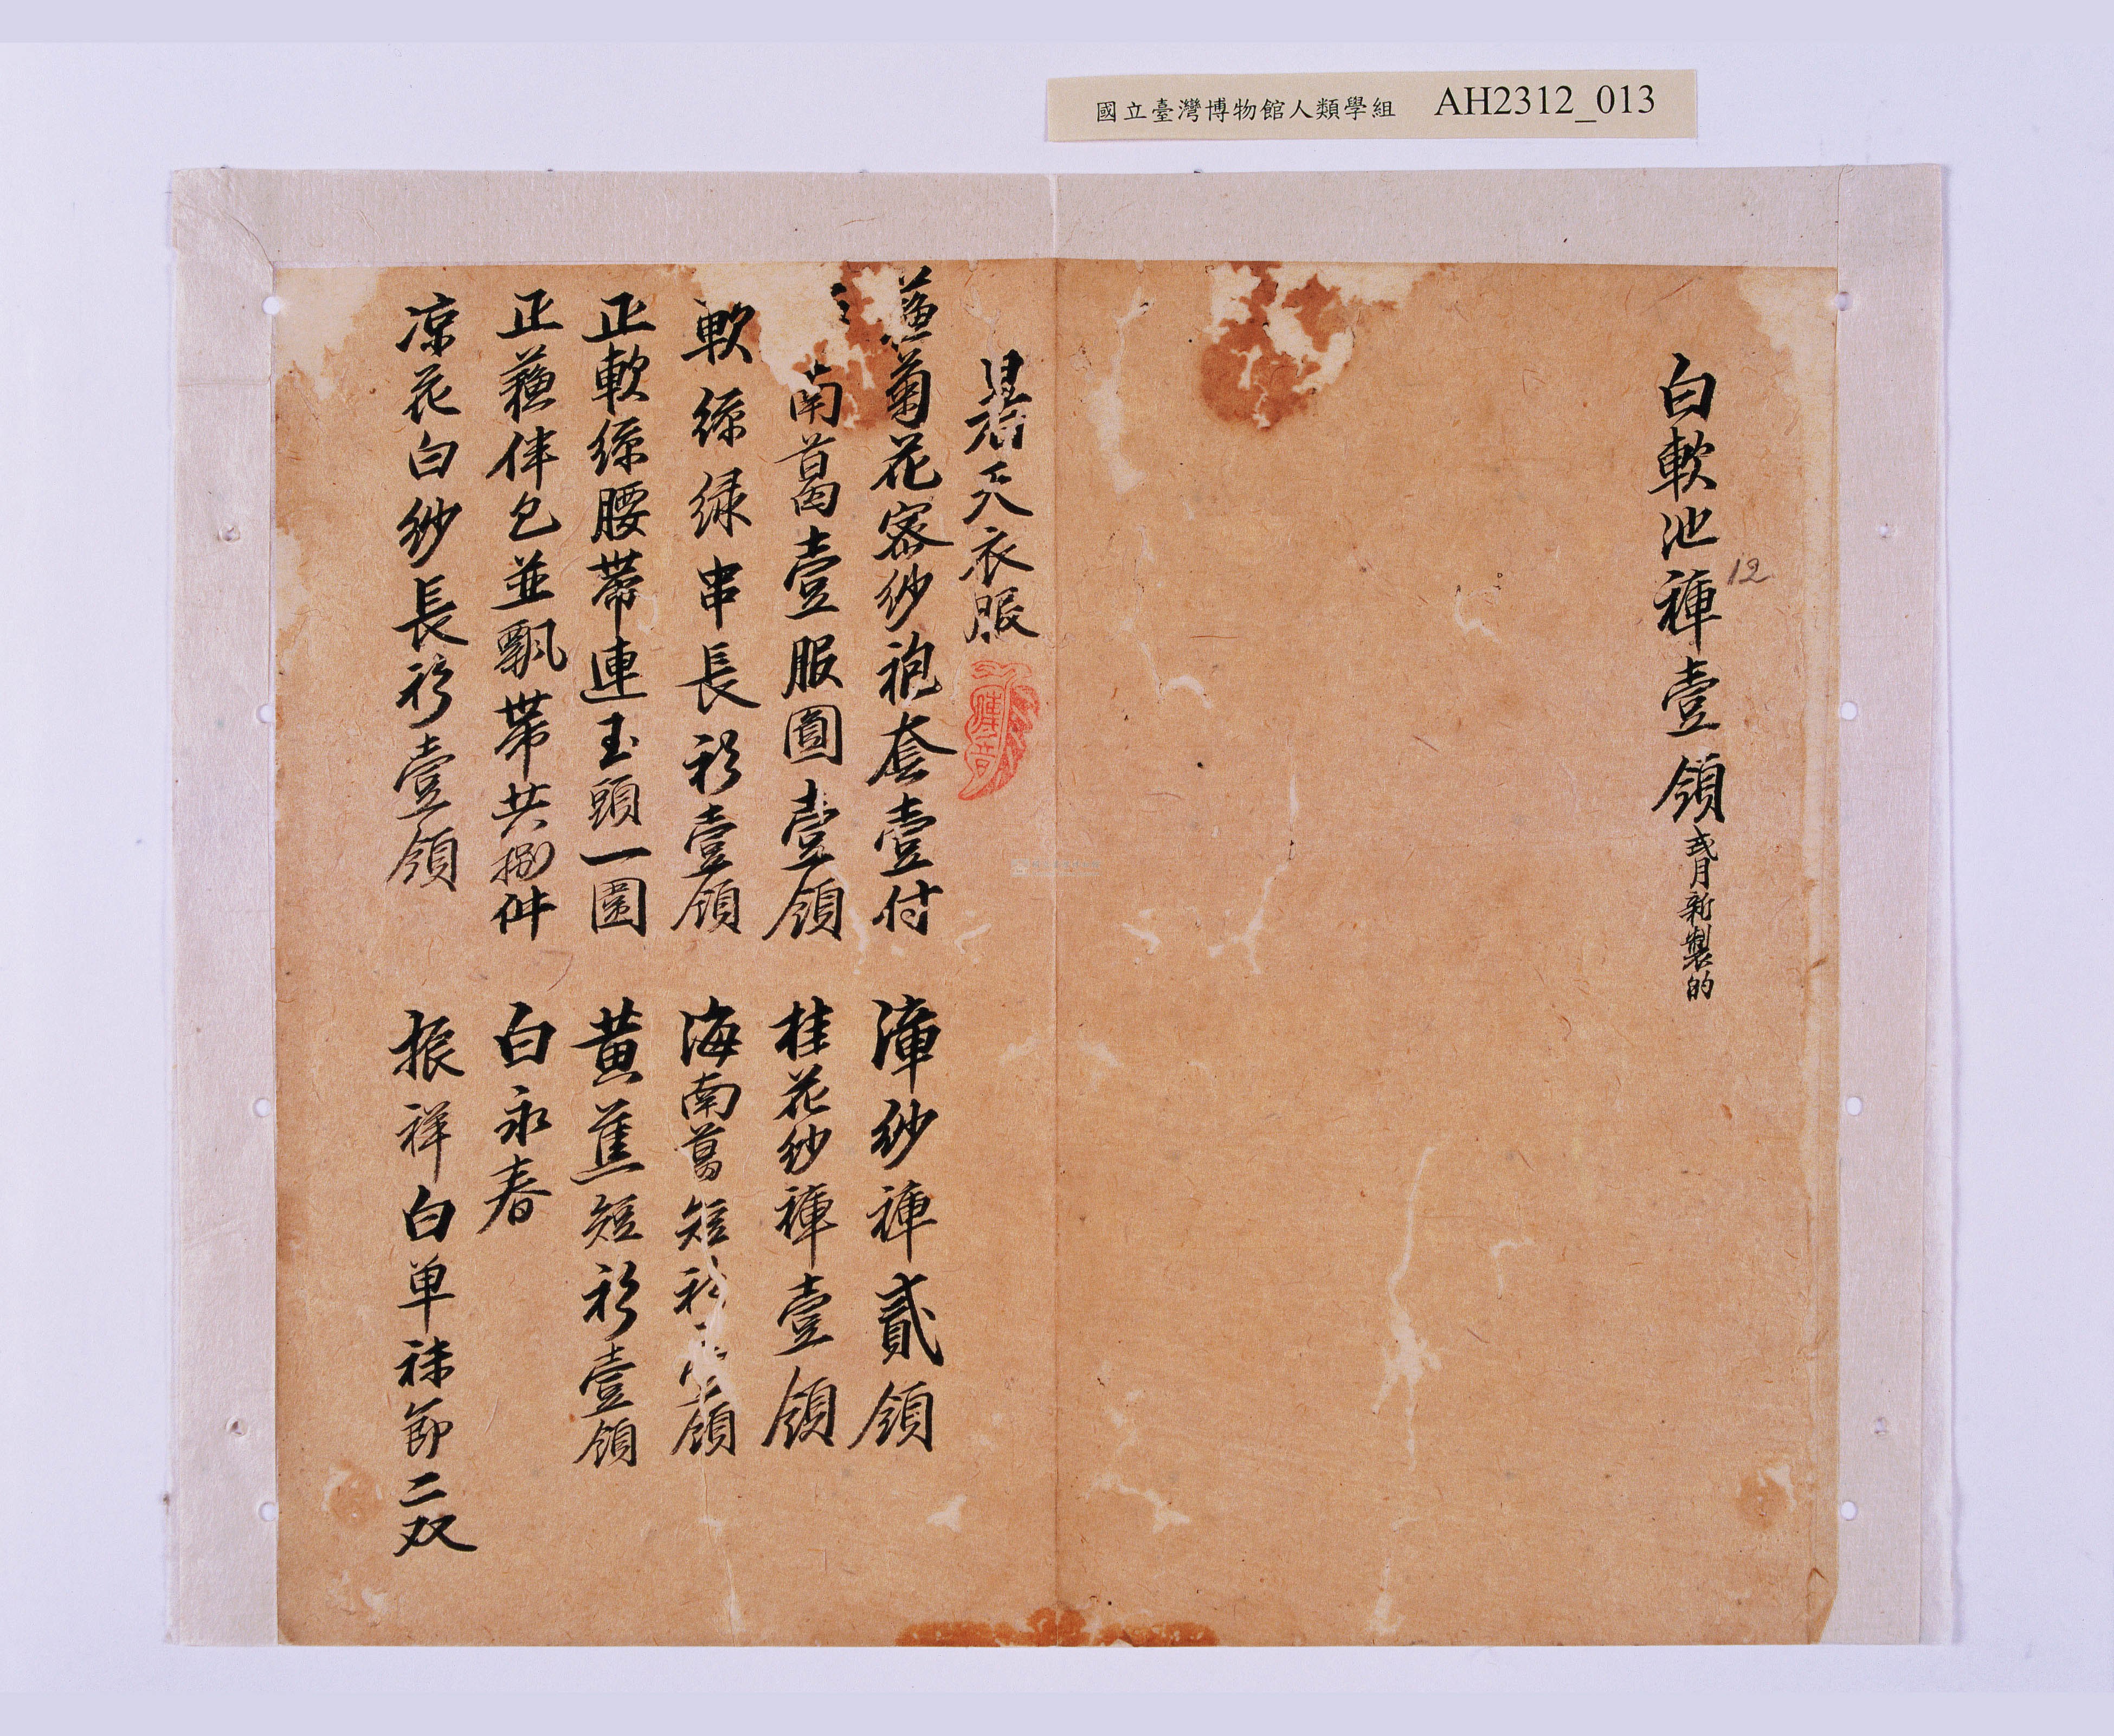 國立臺灣博物館人類學組 AH2312_013
白軟池褲壹領 弍月新製的
12
君天衣服
菊花客紗袍套壹付 漳紗褲貳領
南葛壹服圓壹領 桂花紗褲壹領
軟綠綠串長衫壹領 海南葛短衫壹領
正軟綠腰帶連玉頭一圍 黃蕉短衫壹領
正蘓伴包並飄帶共捌件 白永春
凉花白紗長衫壹領 振祥白单袜節二双